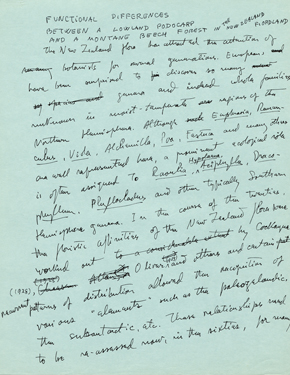 FUNCTIONAL DIFFERENCES
BETWEEN A LOWLAND PODOCARP
AND A MONTANE BEECH FOREST IN the NEW ZEALAND FIORDLAND
The New Zealand flora has attracted the attention of
many botanists for several generations. European
have been surprised to discover so many
genera and indeed whole families
unknown in moist-temperate regions of the
Northern Hemisphere. Although Euphrasia, Ranun-
culus, Viola, Alchemilla, Poa, Festuca and many others
are well represented here, a prominent ecological role
is often assigned to Raoulia, Aciphylla, Draco-
phyllum, Phyllocladus and other typically Southern
Hemisphere genera. In the course of the twenties
the floristic affinities of the New Zealand flora were
worked out to a considerable extent by Cockayne
(1928), Oliver and others and certain
patterns of distribution allowed the recognition of
various "elements" such as the paleozelandic,
the subantarctic, etc. These relationships need
to be re-assessed now, in the sixties, for many